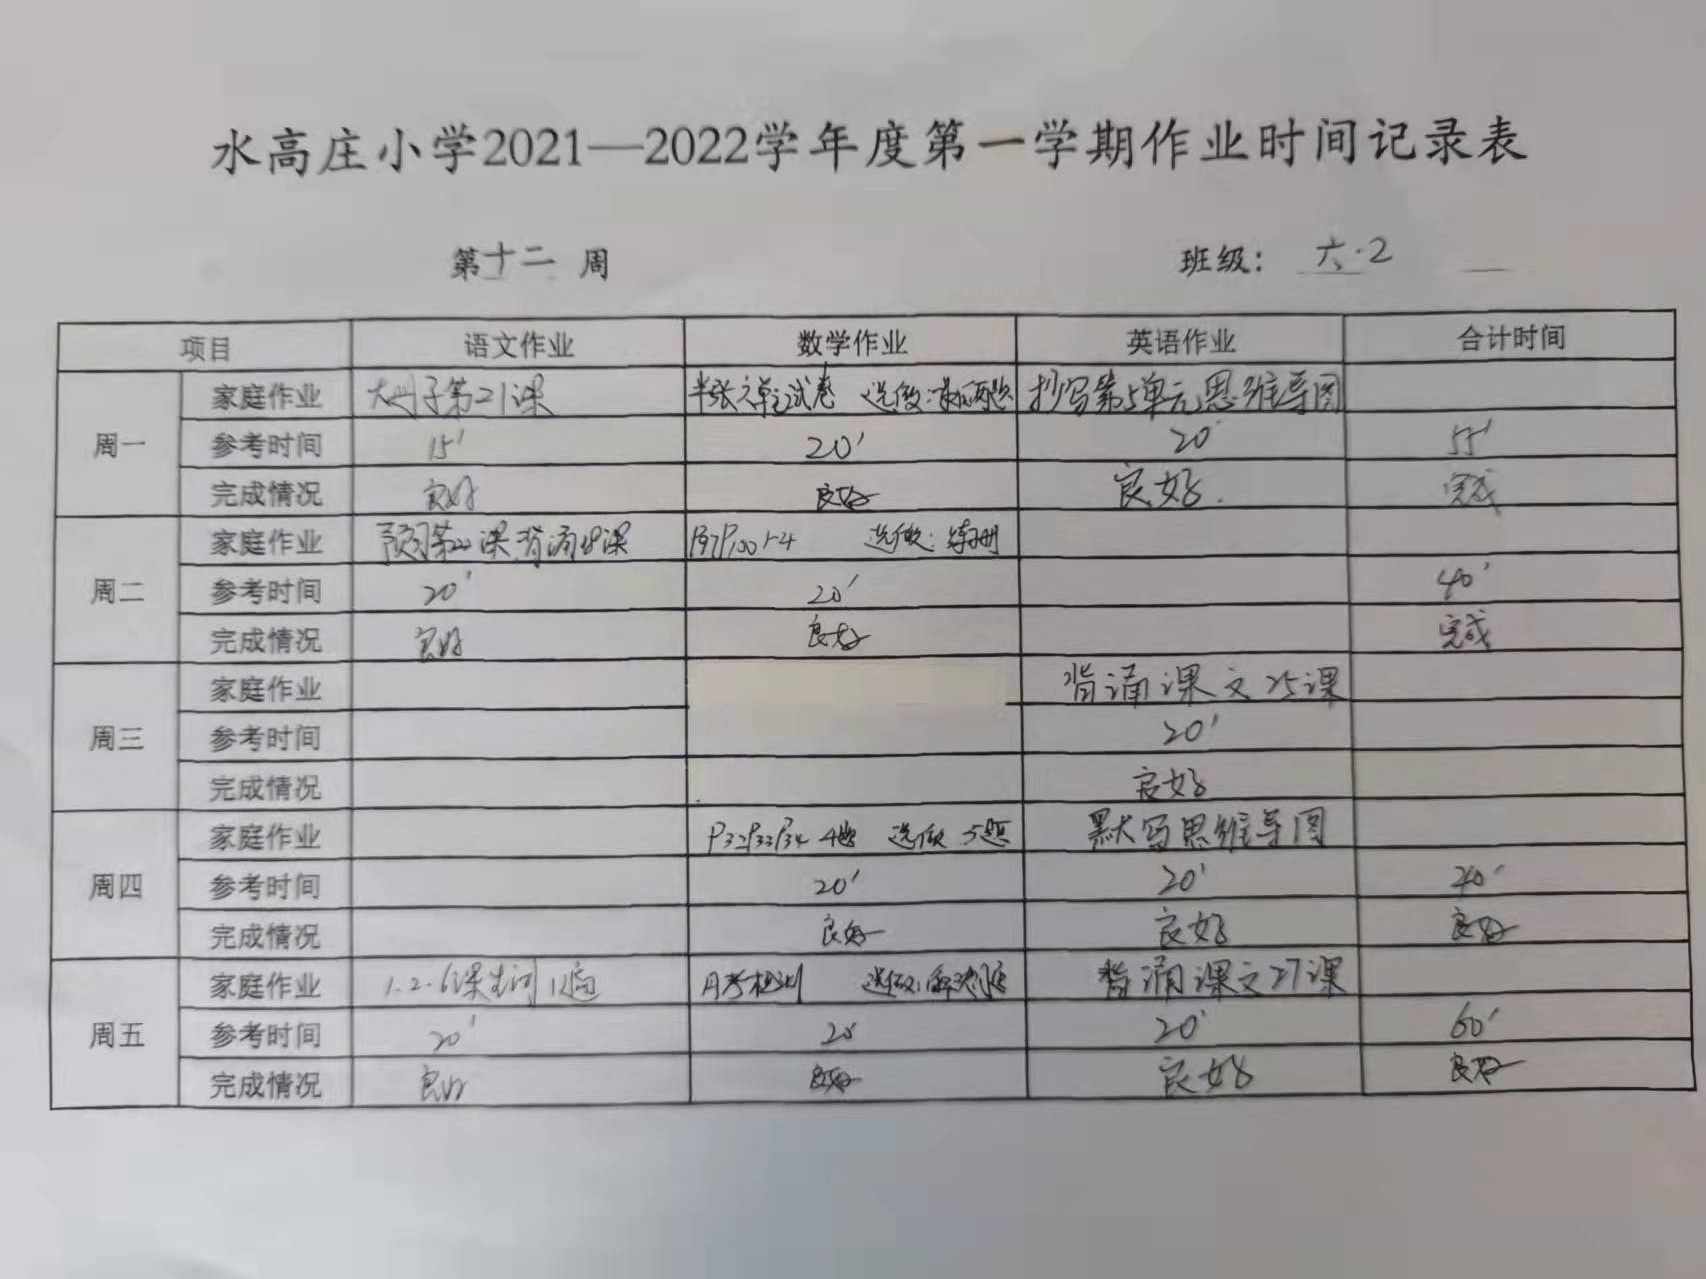 水高庄小学2021—2022学年度第一学期作业时间记录表
第十二 周 班级: 六.2
项目 语文作业 数学作业 英语作业 合计时间
周一 家庭作业 大册子第21课 半张单元试卷 选做:最后两题 抄写第5单元思维导图
参考时间 15' 20' 20' 55'
完成情况 良好 良好 良好. 完成
周二 家庭作业 预习第22课.背诵18课 P97P100 1-4 选做:练习册
参考时间 20' 20' 40'
完成情况 良好 良好 完成
周三 家庭作业 背诵课文25课
参考时间 20'
完成情况 良好
周四 家庭作业 P32P33P34 4题 选做 5题 默写思维导图
参考时间 20' 20' 40'
完成情况 良好 良好 良好
周五 家庭作业 1.2.6课生词 1遍 月考检测 选做: 背诵课文27课
参考时间 20' 20' 20' 60'
完成情况 良好 良好 良好 良好